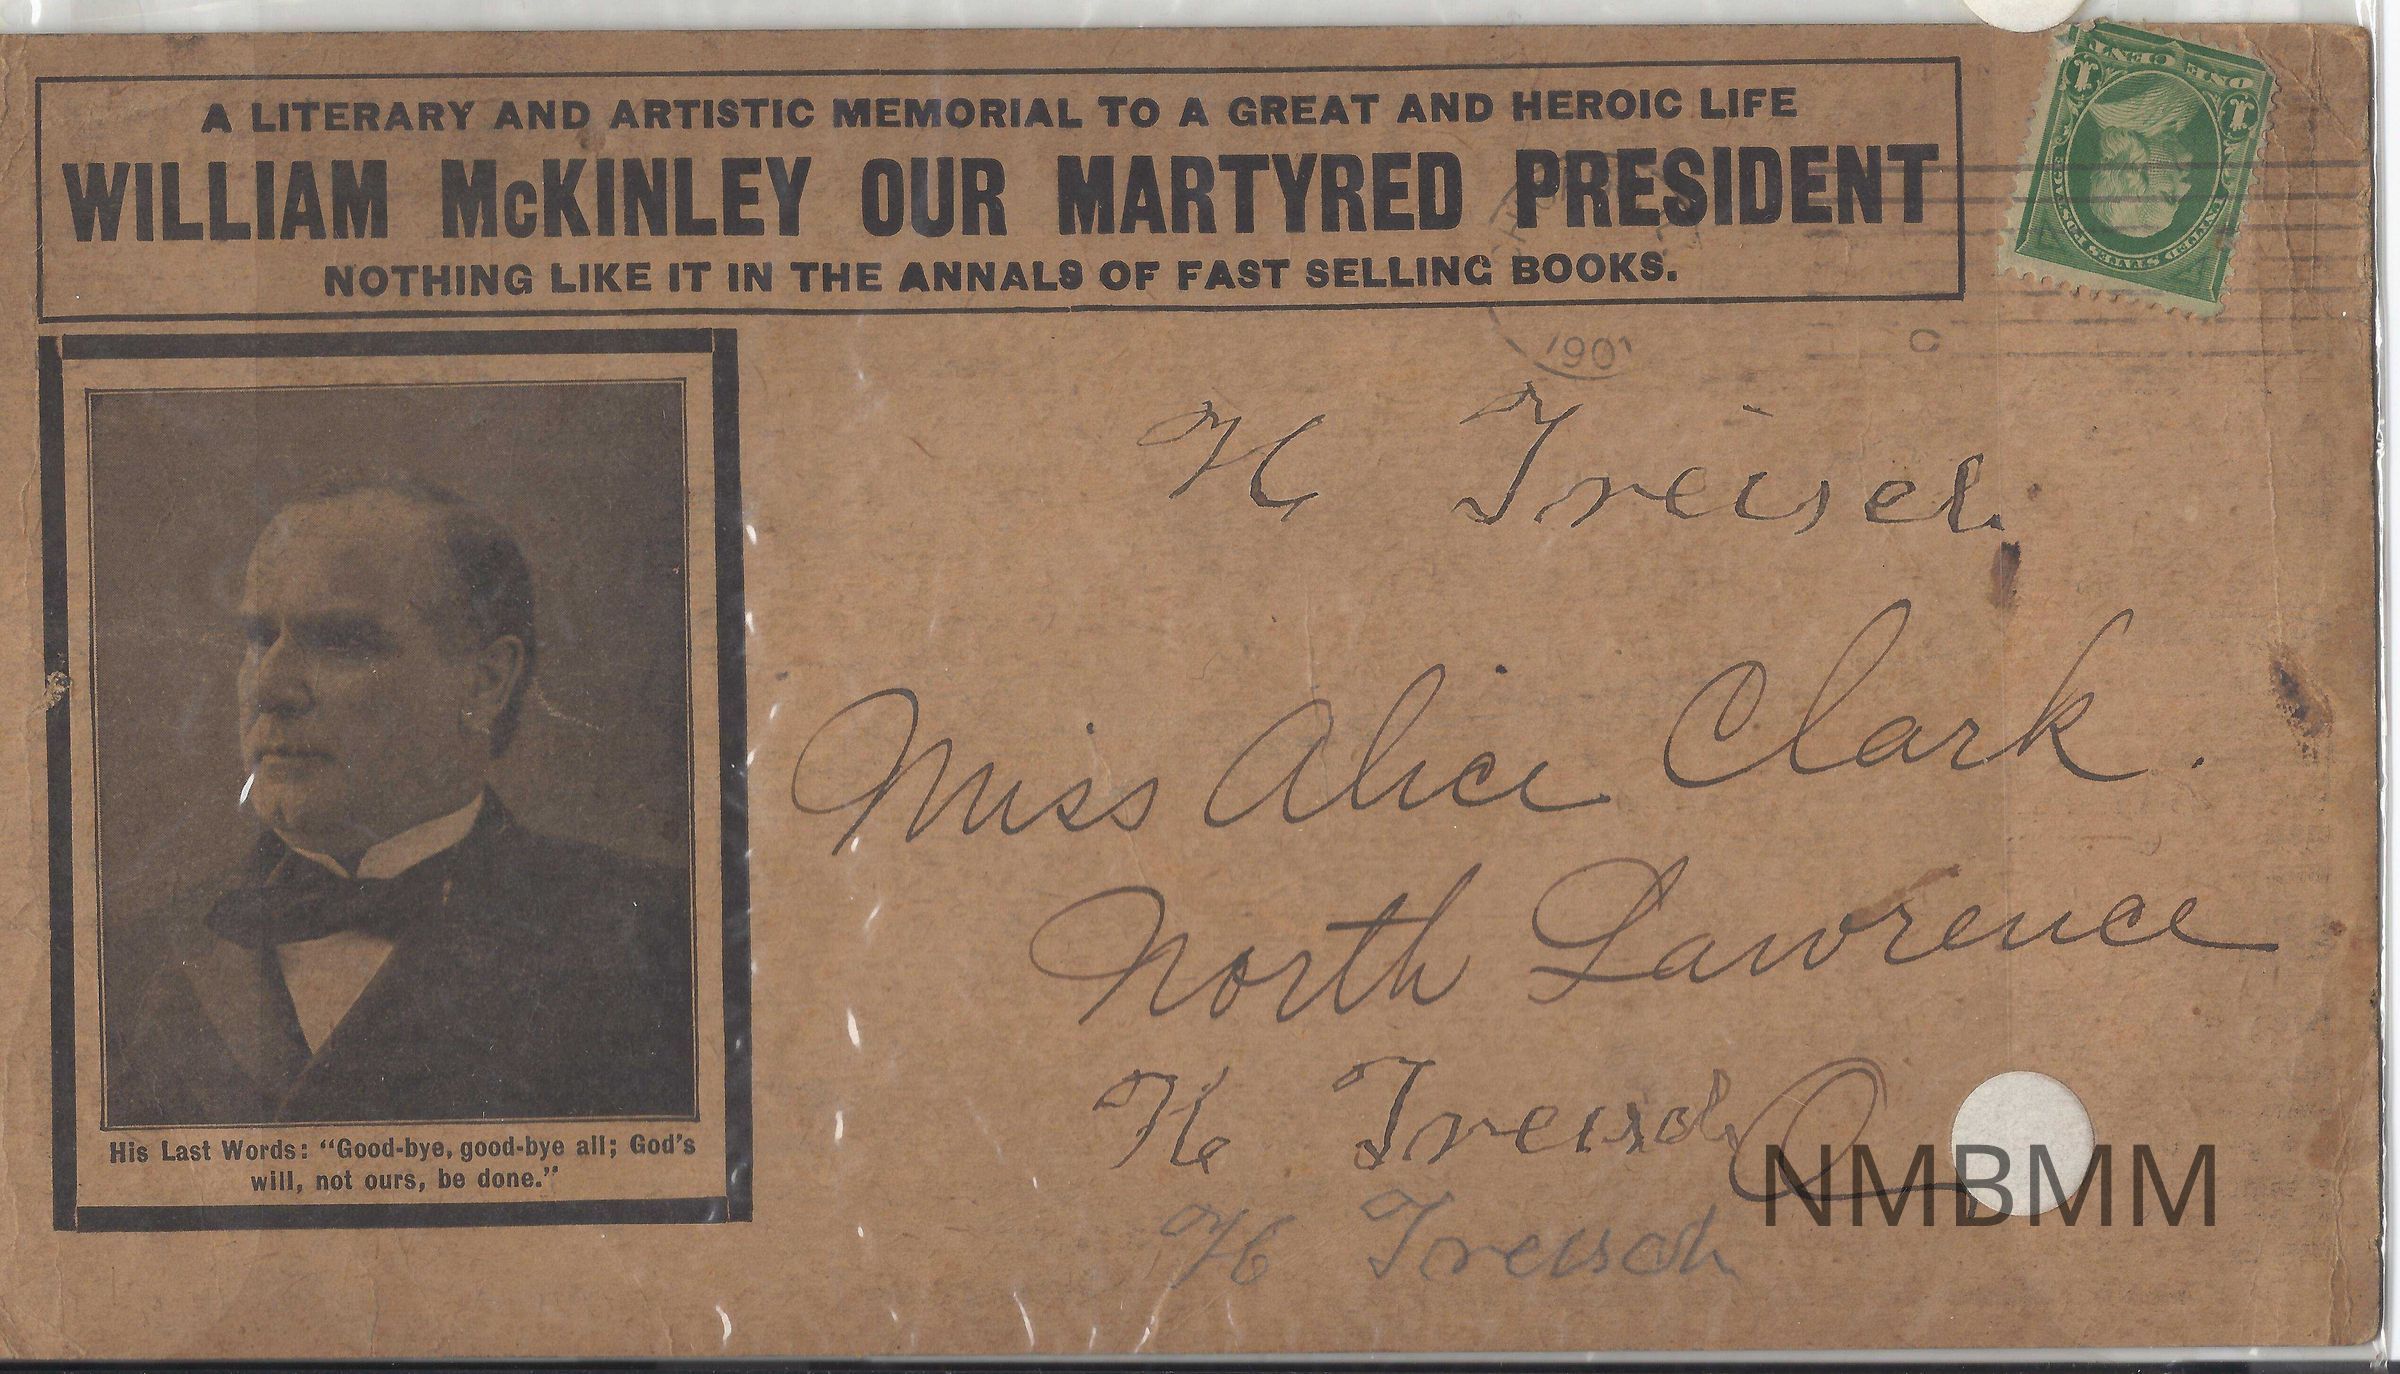 A LITERARY AND ARTISTIC MEMORIAL TO A GREAT AND HEROIC LIFE
WILLIAM McKINLEY OUR MARTYRED PRESIDENT
NOTHING LIKE IT IN THE ANNALS OF FAST SELLING BOOKS.
ONE CENT
1 1
UNITED STATES POSTAGE
1901
H Treisch
Miss Alice Clark.
North Lawrence
H Treisch O
H Treisch
His Last Words: "Good-bye, good-bye all; God's
will, not ours, be done."
NMBMM